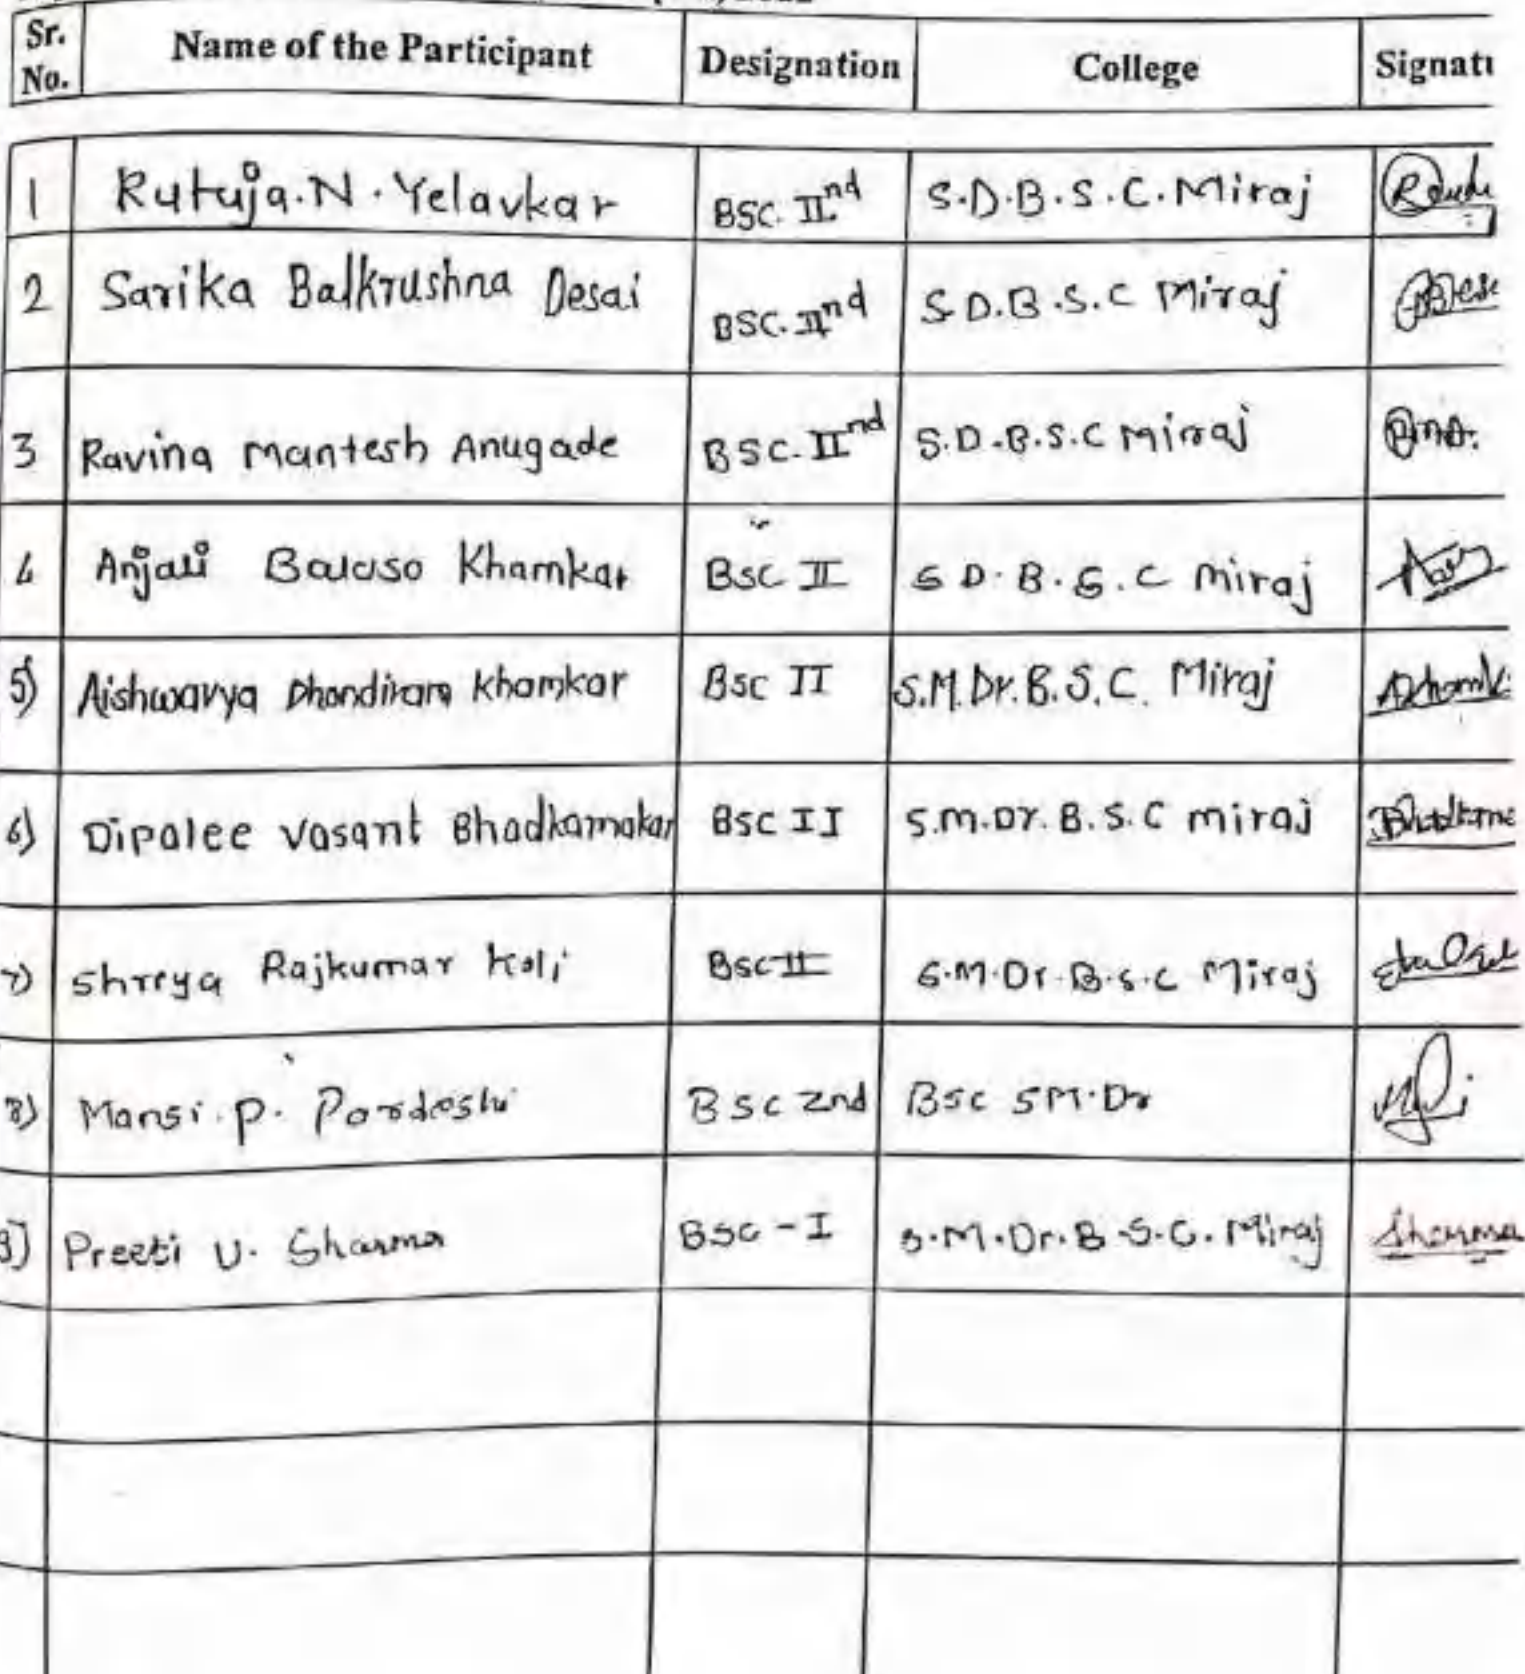 Sr. No. Name of the Participant Designation College Signatu
1 Rutuja.N.Yelavkar BSC.IInd S.D.B.S.C.Miraj
2 Sarika Balkrushna Desai BSC.IInd S.D.B.S.C Miraj
3 Ravina Mantesh Anugade BSC.IInd S.D.B.S.C Miraj
4 Anjali Khamkar BSC II S D.B.S.C Miraj
5) Aishwarya Dhondiram Khamkar BSC II S.M.Dr.B.S.C. Miraj
6) Dipalee Vasant Bhadkamakar BSC II S.M.Dr.B.S.C Miraj
7) Shreya Rajkumar Koli BSC II S.M.Dr.B.S.C Miraj
8) Mansi.P. Pardeshi BSC 2nd BSC SM.Dr
9] Preeti U. Sharma BSC-I S.M.Dr.B.S.C.Miraj Sharma